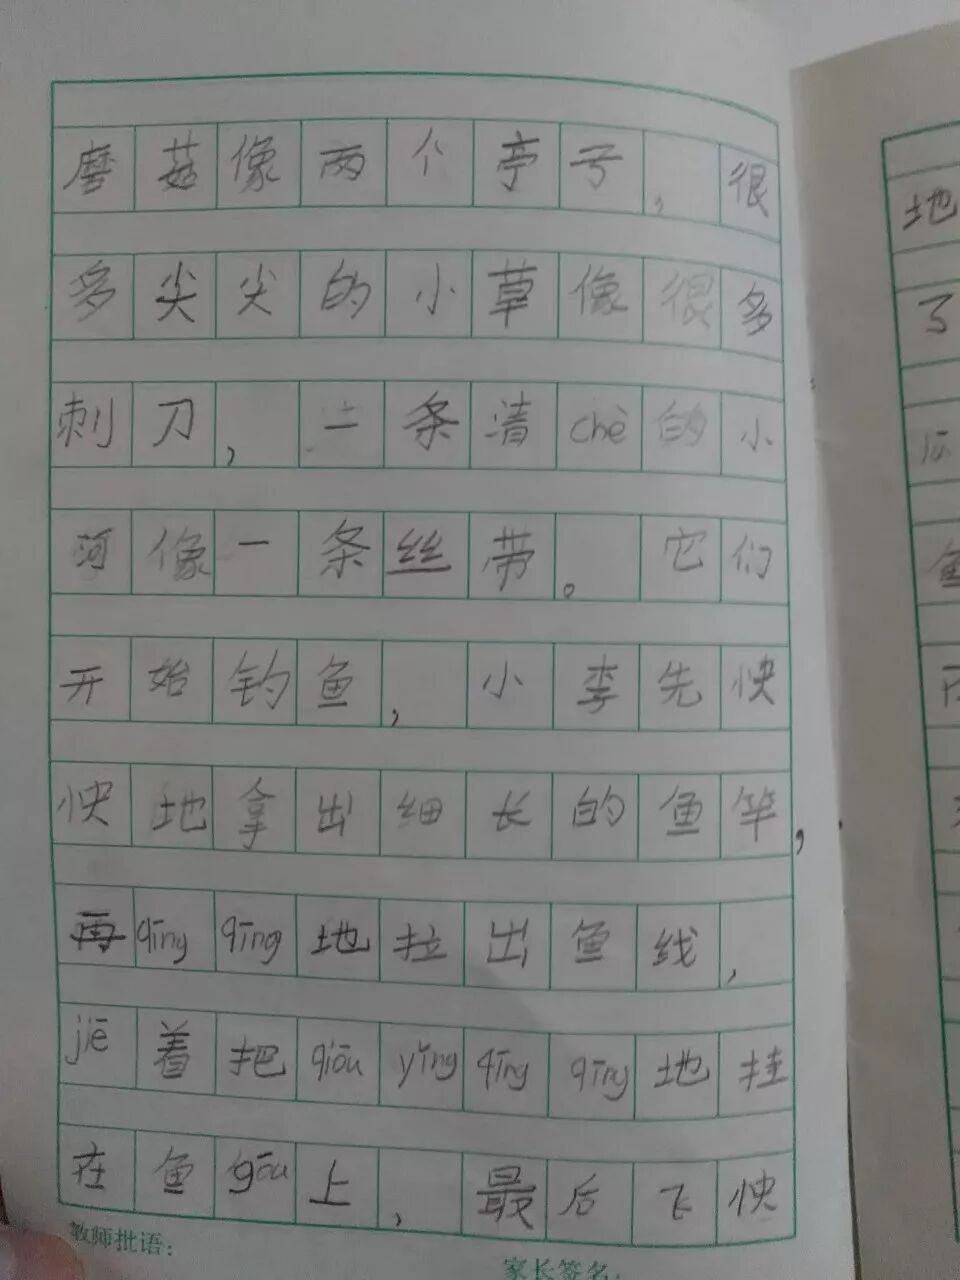 磨菇像两个亭子,很
多尖尖的小草像很多
刺刀,一条清chè的小
河像一条丝带。它们
开始钓鱼,小李先快
快地拿出细长的鱼竿,
再qīng qīng地拉出鱼线,
jiē着把qiōu yǐng qīng qīng地挂
在鱼gōu上,最后飞快
教师批语:
家长签名:
地
了
鱼